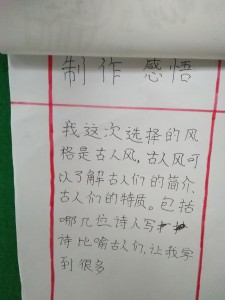 制作感悟
我这次选择的风
格是古人风,古人风可
以了解古人们的简介、
古人们的特质。包括
哪几位诗人写
诗比喻古人们,让我学
到很多